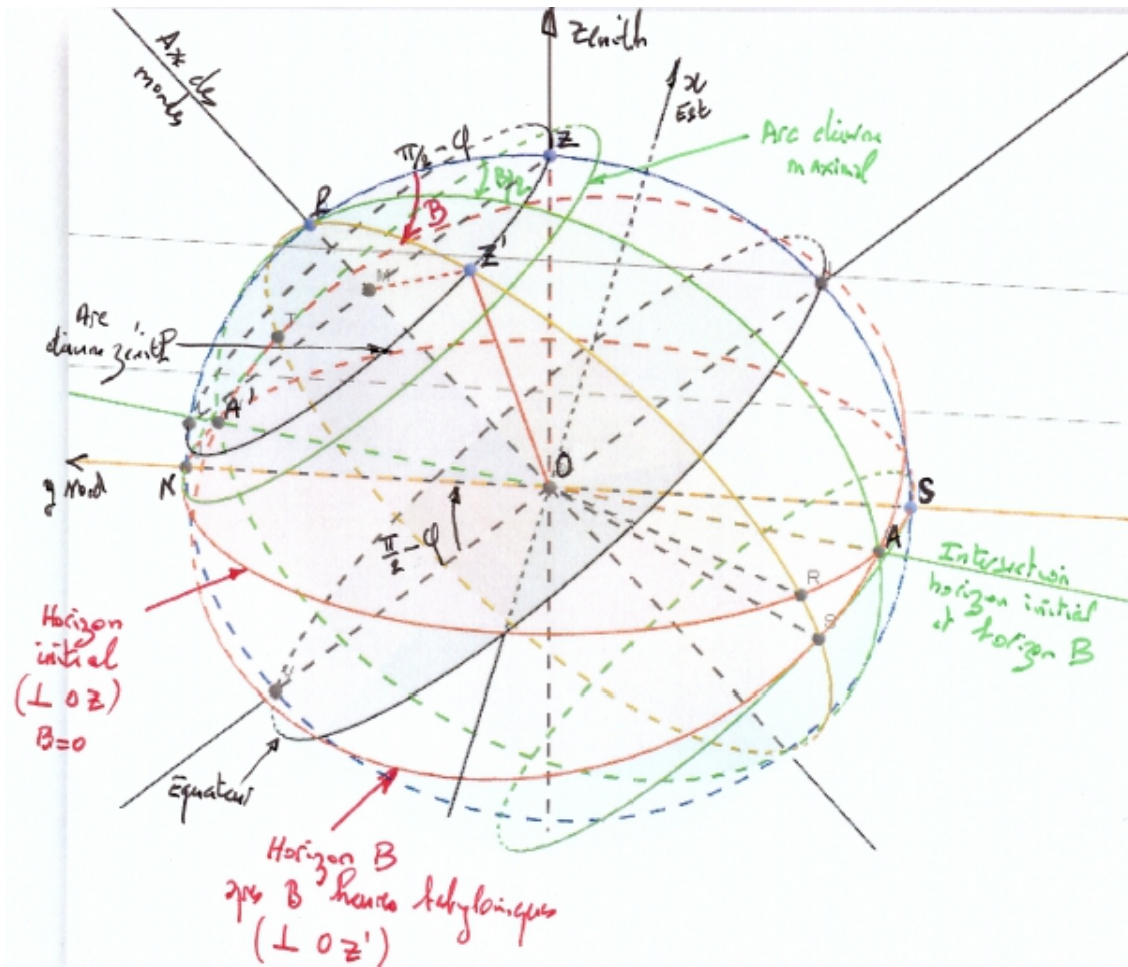 Axe des
mondes
Zénith
x
Est
Arc diurne
maximal
π/2 - φ
Z
B/2
B
P
Z'
M
T
Arc
diurne zénith
A'
N
y Nord
O
S
A
π/2 - φ
R
S
Intersection
horizon initial
et horizon B
Horizon
initial
(⊥ OZ)
B=0
Equateur
Horizon B
après B heures babyloniques
(⊥ OZ')